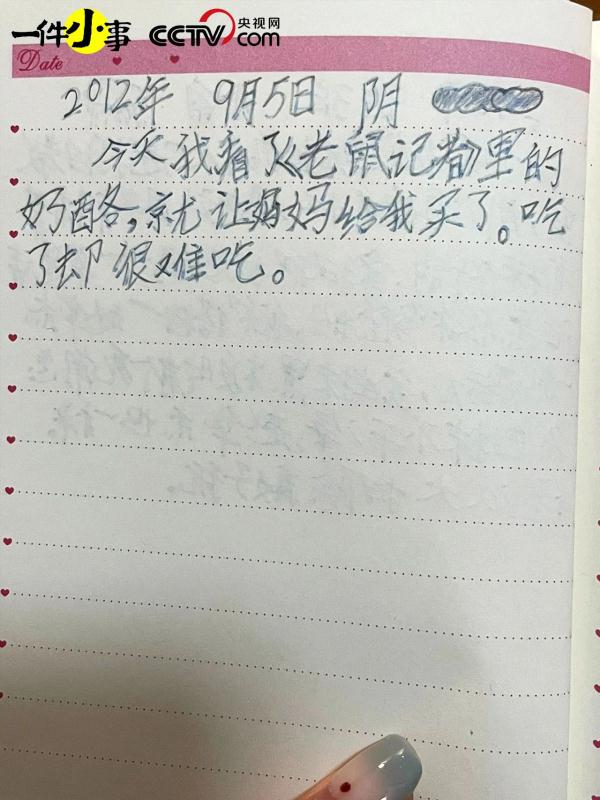 一件小事 CCTV.com 央视网
Date
2012年 9月5日 阴
今天我看了《老鼠记者》里的
奶酪,就让妈妈给我买了。吃
了却很难吃。